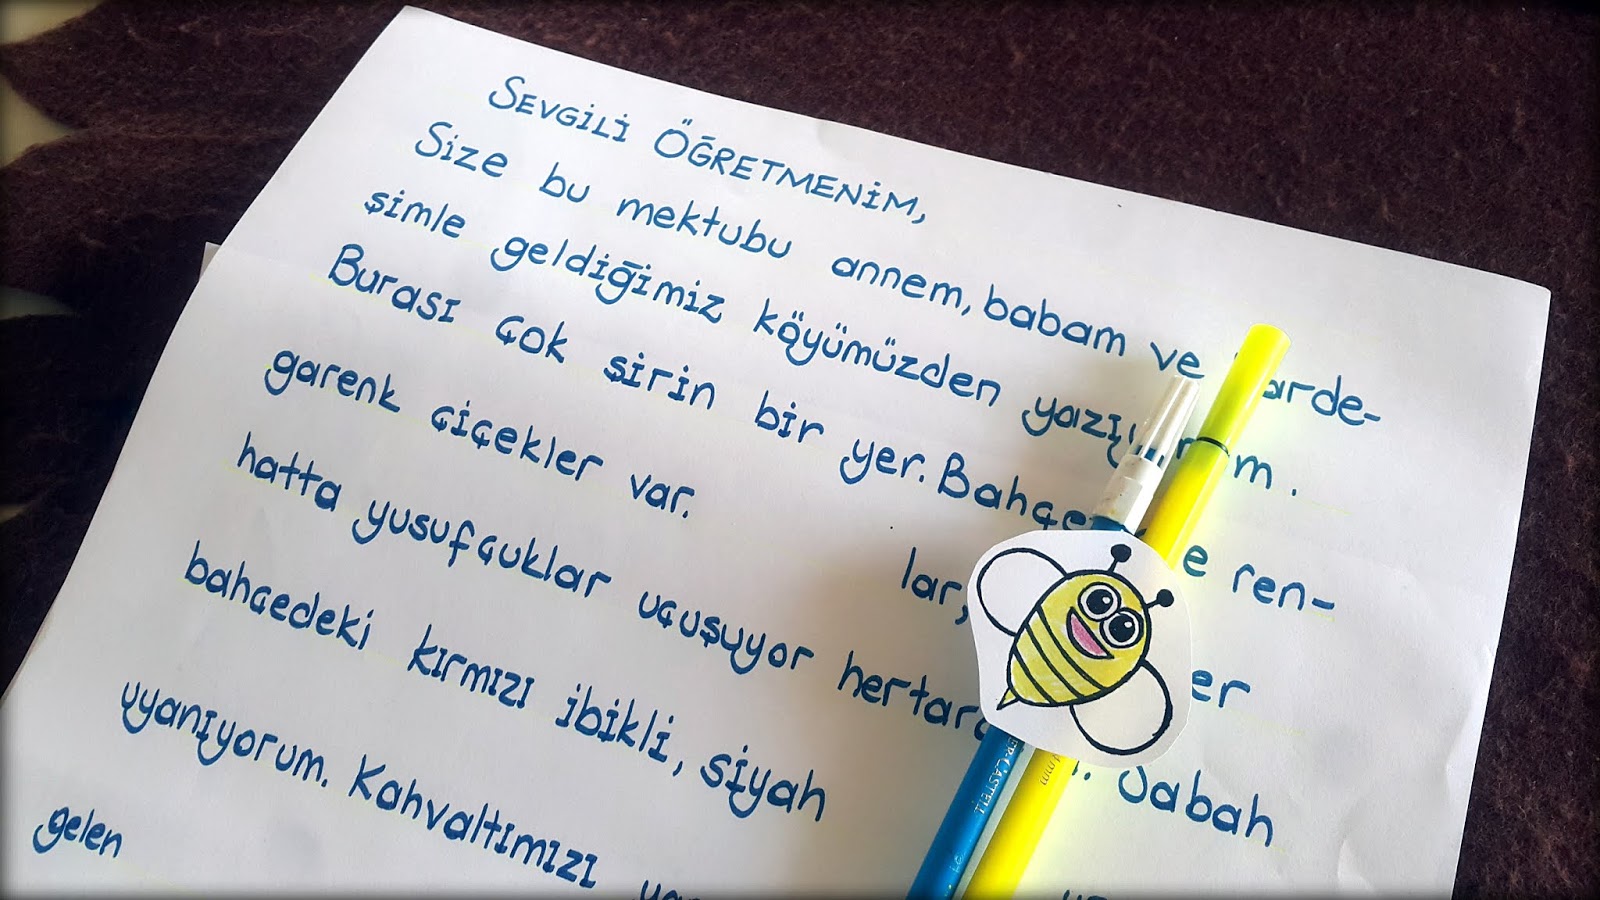 SEVGİLİ ÖĞRETMENİM,
Size bu mektubu annem, babam ve arde-
şimle geldiğimiz köyümüzden
Burası çok şirin bir yer. ren-
garenk çiçekler var. lar, er
hatta yusufçuklar uçuşuyor Sabah
bahçedeki kırmızı ibikli, siyah
uyanıyorum. Kahvaltımızı
gelen